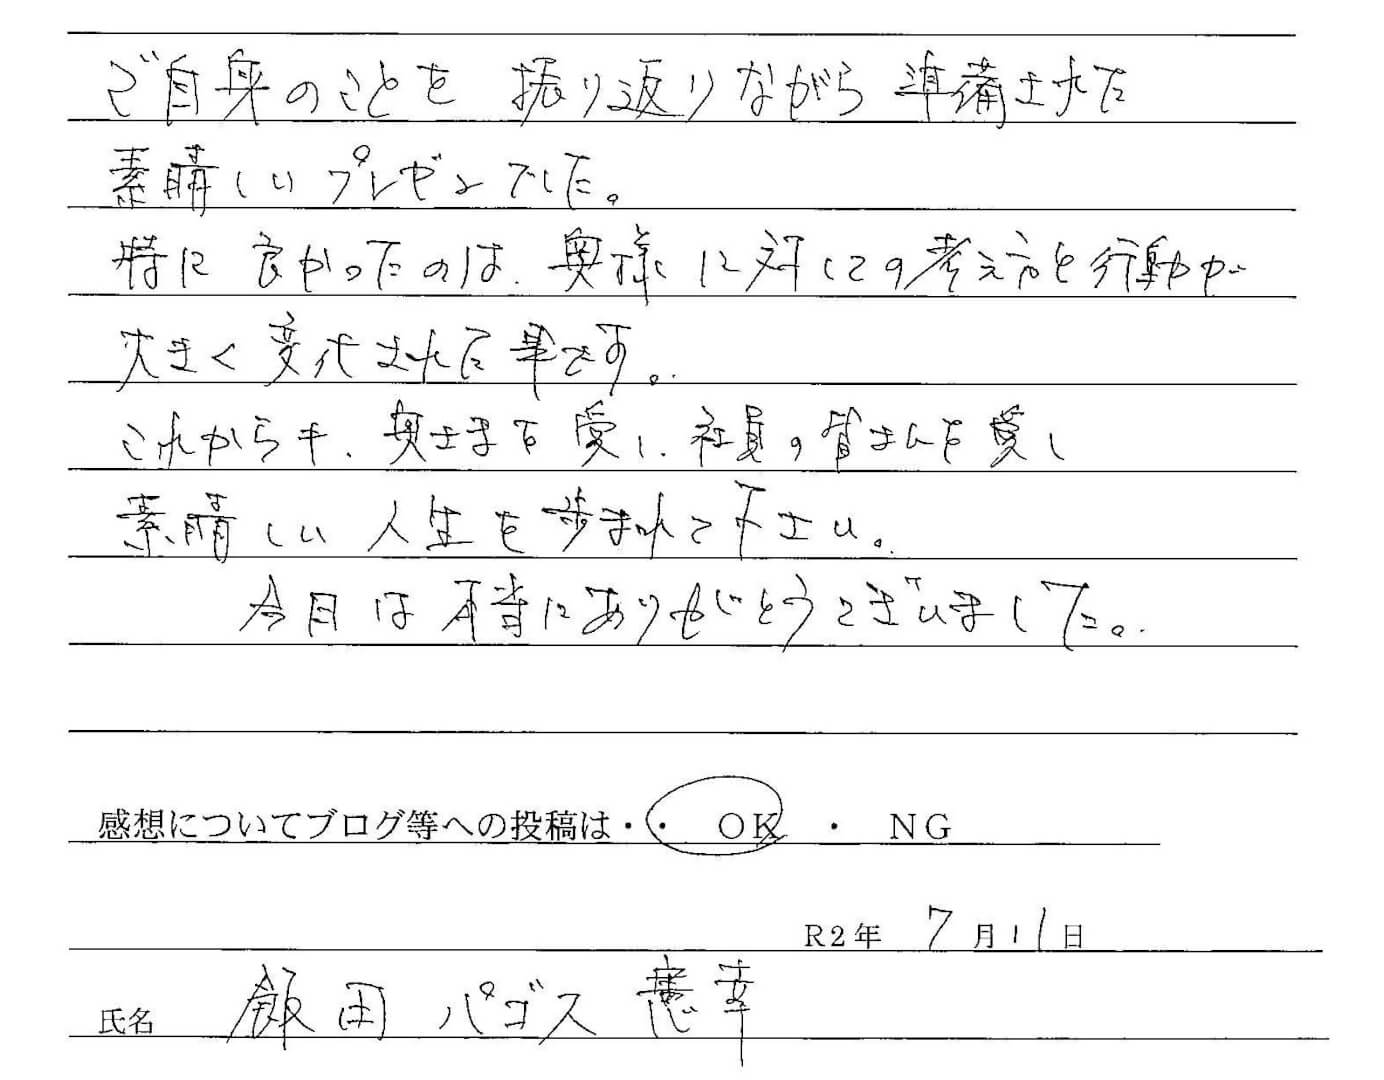 ご自身のことを 振り返りながら 準備された
素晴しい プレゼンでした。
特に 良かったのは、奥様に対しての考え方と行動が
大きく変化された事です。
これからも、奥さまを愛し、社員の皆さんを愛し
素晴しい 人生を歩まれて下さい。
今日は本当にありがとうございました。
感想についてブログ等への投稿は・・ OK ・ NG
R2年 7月11日
氏名 飯田 パゴス 憲幸